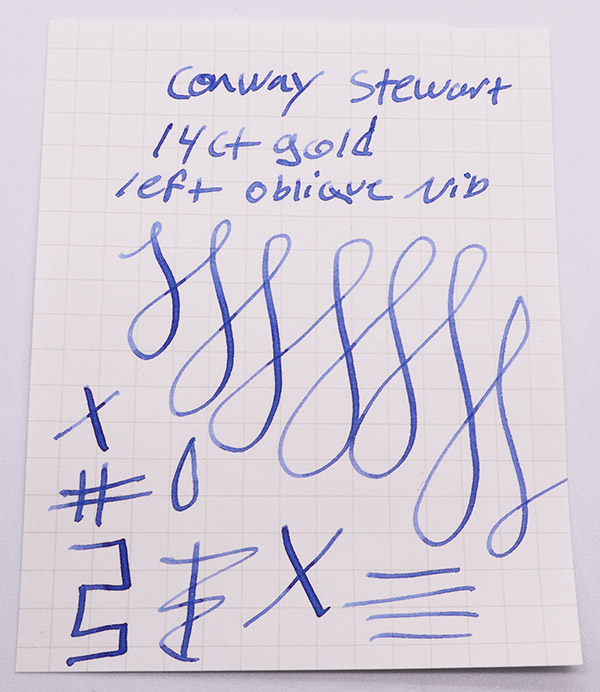 Conway Stewart
14ct gold
left oblique nib